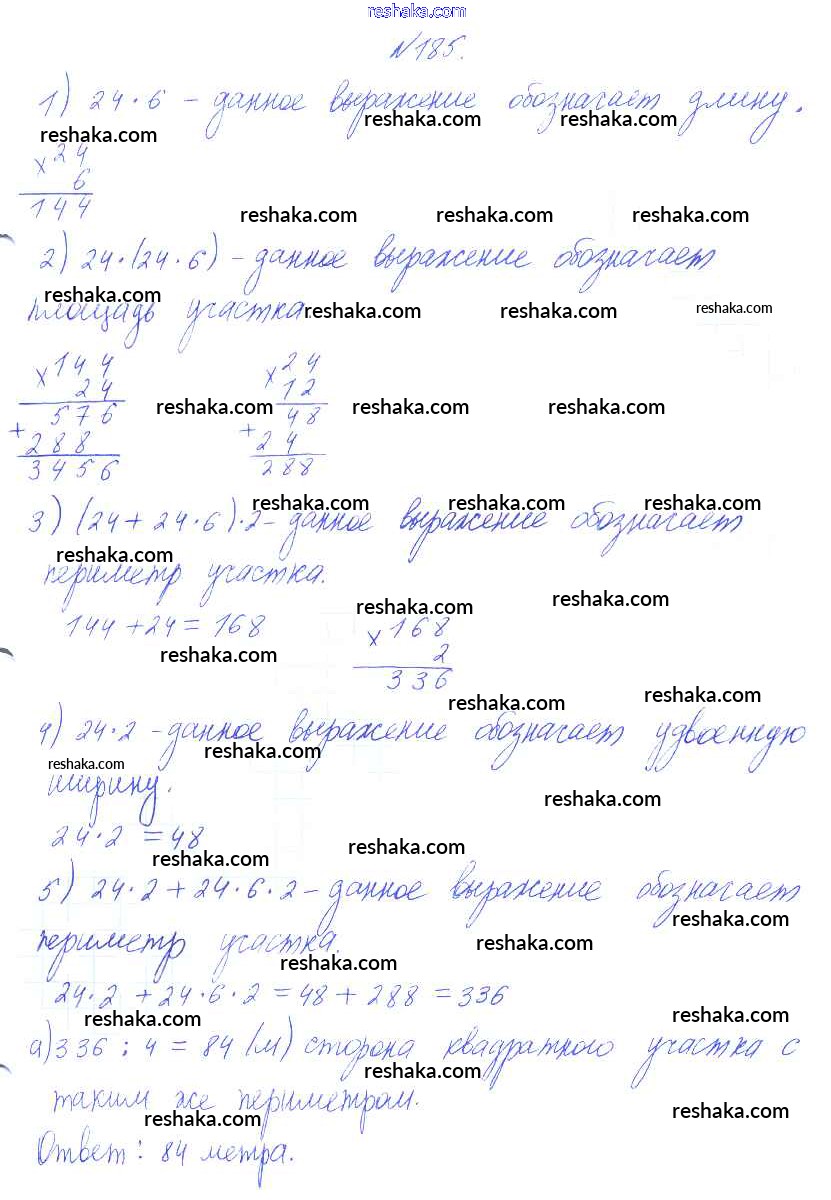 reshaka.com
№185.
1) 24·6 – данное выражение обозначает длину.
reshaka.com reshaka.com
reshaka.com
×24
6
144
reshaka.com reshaka.com reshaka.com
2) 24·(24·6) – данное выражение обозначает
reshaka.com
площадь участка.
reshaka.com reshaka.com reshaka.com
×144 ×24
24 12
reshaka.com reshaka.com reshaka.com
576 48
+288 +24
3456 288
reshaka.com reshaka.com reshaka.com
3) (24+24·6)·2 – данное выражение обозначает
reshaka.com
периметр участка.
reshaka.com reshaka.com
144+24=168 ×168
reshaka.com 2
336
reshaka.com reshaka.com
4) 24·2 – данное выражение обозначает удвоенную
reshaka.com reshaka.com
ширину.
reshaka.com
24·2=48
reshaka.com reshaka.com
5) 24·2+24·6·2 – данное выражение обозначает
reshaka.com
периметр участка.
reshaka.com reshaka.com
24·2+24·6·2=48+288=336
reshaka.com reshaka.com
а) 336:4=84 (м) сторона квадратного участка с
reshaka.com
таким же периметром.
reshaka.com reshaka.com
Ответ: 84 метра.